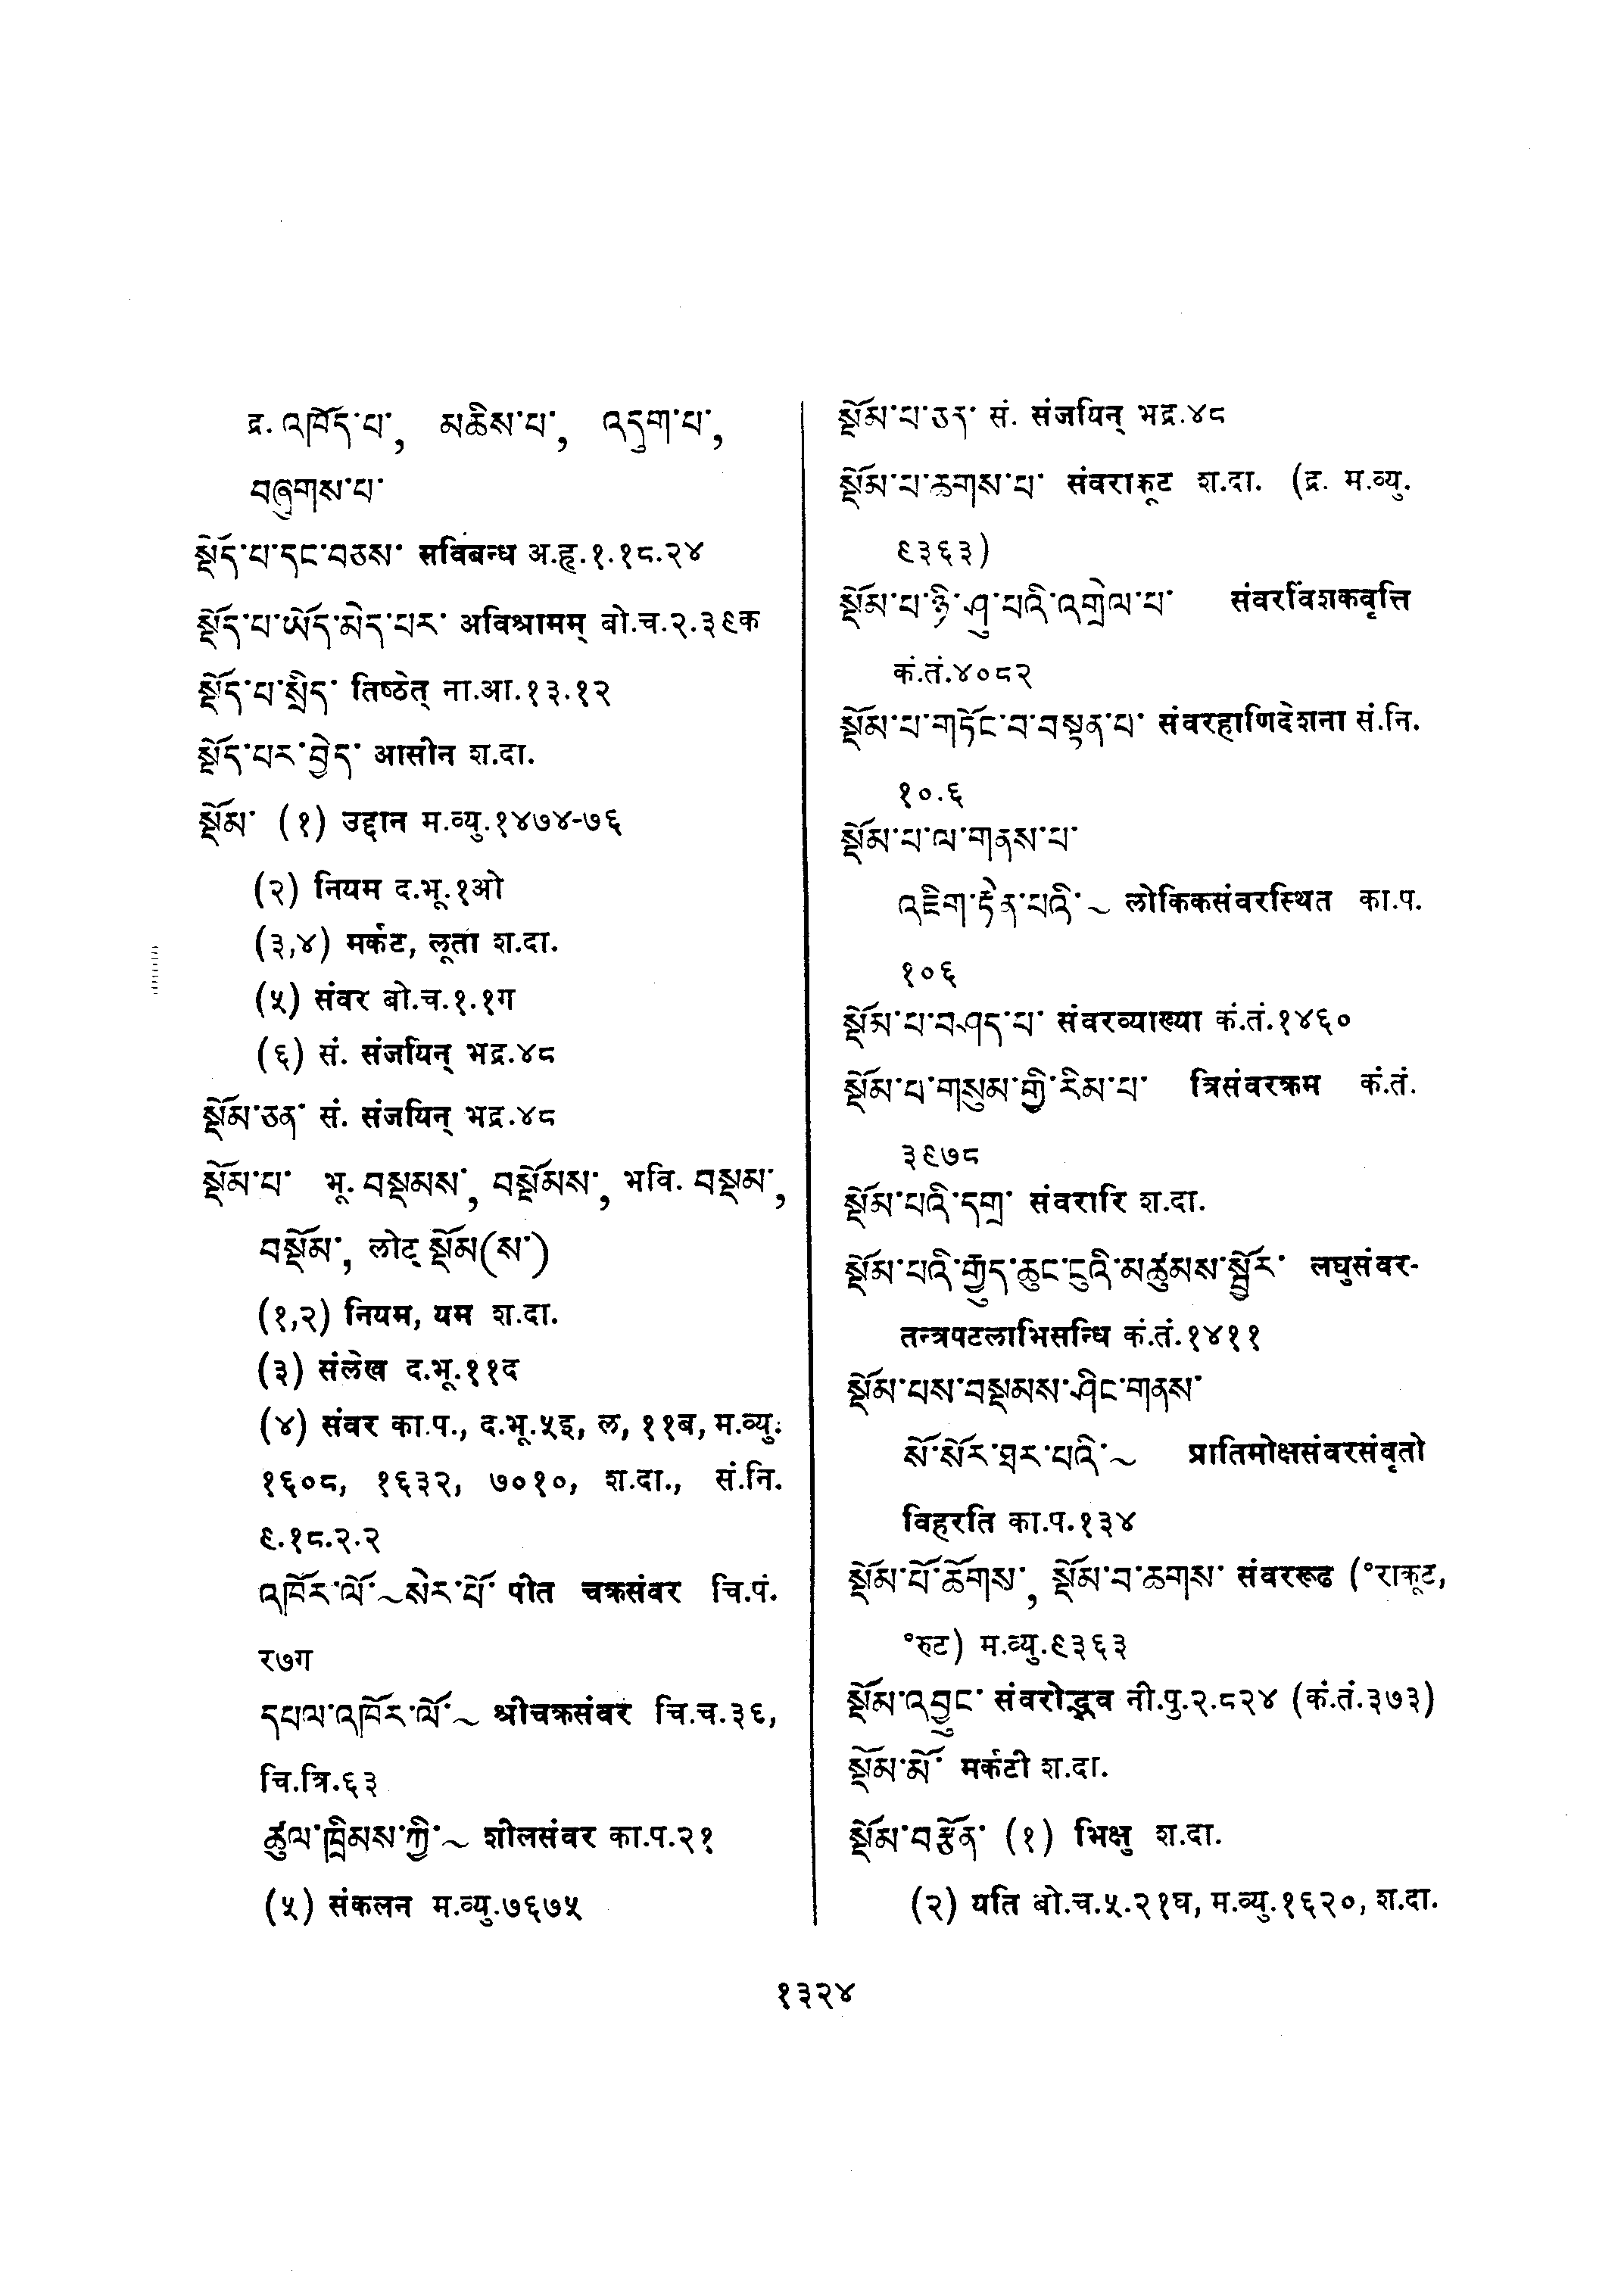 द्र. འཁོད་པ་, མཆིས་པ་, འདུག་པ་,
བཞུགས་པ་
སྡོད་པ་དང་བཅས་ सविबन्ध अ.हृ.१.१८.२४
སྡོད་པ་ཡོད་མེད་པར་ अविश्रामम् बो.च.२.३९क
སྡོད་པ་སྲིད་ तिष्ठेत् ना.आ.१३.१२
སྡོད་པར་བྱེད་ आसीन श.दा.
སྡོམ་ (१) उद्दान म.व्यु.१४७४-७६
(२) नियम द.भू.१ओ
(३,४) मर्कट, लूता श.दा.
(५) संवर बो.च.१.१ग
(६) सं. संजयिन् भद्र.४८
སྡོམ་ཅན་ सं. संजयिन् भद्र.४८
སྡོམ་པ་ भू. བསྡམས་, བསྡོམས་, भवि. བསྡམ་,
བསྡོམ་, लोट् སྡོམ(ས་)
(१,२) नियम, यम श.दा.
(३) संलेख द.भू.११द
(४) संवर का.प., द.भू.५इ, ल, ११ब, म.व्यु.
१६०८, १६३२, ७०१०, श.दा., सं.नि.
९.१८.२.२
འཁོར་ལོ་~སེར་པོ་ पीत चक्रसंवर चि.पं.
र७ग
དཔལ་འཁོར་ལོ་~ श्रीचक्रसंवर चि.च.३६,
चि.त्रि.६३
ཚུལ་ཁྲིམས་ཀྱི་~ शीलसंवर का.प.२१
(५) संकलन म.व्यु.७६७५
སྡོམ་པ་ཅན་ सं. संजयिन् भद्र.४८
སྡོམ་པ་ཆགས་པ་ संवराक्रूट श.दा. (द्र. म.व्यु.
९३६३)
སྡོམ་པ་ཉི་ཤུ་པའི་འགྲེལ་པ་ संवरविंशकवृत्ति
कं.तं.४०८२
སྡོམ་པ་གཏོང་བ་བསྟན་པ་ संवरहाणिदेशना सं.नि.
१०.६
སྡོམ་པ་ལ་གནས་པ་
འཇིག་རྟེན་པའི་~ लोकिकसंवरस्थित का.प.
१०६
སྡོམ་པ་བཤད་པ་ संवरव्याख्या कं.तं.१४६०
སྡོམ་པ་གསུམ་གྱི་རིམ་པ་ त्रिसंवरक्रम कं.तं.
३९७८
སྡོམ་པའི་དགྲ་ संवरारि श.दा.
སྡོམ་པའི་རྒྱུད་ཆུང་ངུའི་མཚུམས་སྦྱོར་ लघुसंवर-
तन्त्रपटलाभिसन्धि कं.तं.१४११
སྡོམ་པས་བསྡམས་ཤིང་གནས་
སོ་སོར་ཐར་པའི་~ प्रातिमोक्षसंवरसंवृतो
विहरति का.प.१३४
སྡོམ་པོ་ཆོགས་, སྡོམ་བ་ཆགས་ संवररूढ (°राक्रूट,
°रुट) म.व्यु.९३६३
སྡོམ་འབྱུང་ संवरोद्भव नी.पु.२.८२४ (कं.तं.३७३)
སྡོམ་མོ་ मर्कटी श.दा.
སྡོམ་བརྩོན་ (१) भिक्षु श.दा.
(२) यति बो.च.५.२१घ, म.व्यु.१६२०, श.दा.
१३२४